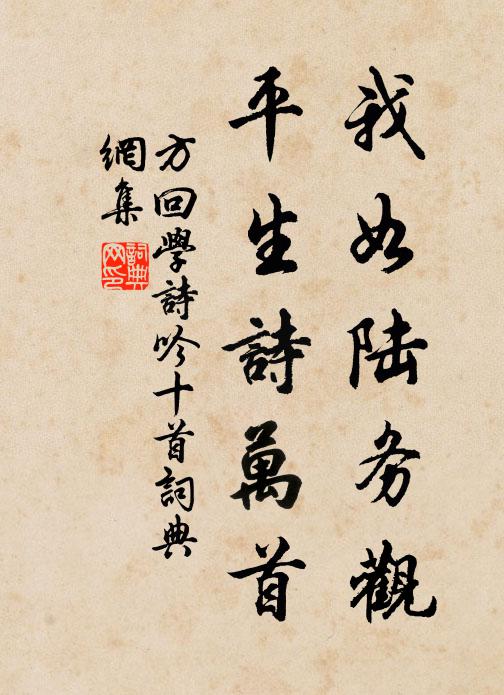 我如陆务觀
平生詩萬首
方回學詩吟十首詞典
網集
詞典
网印